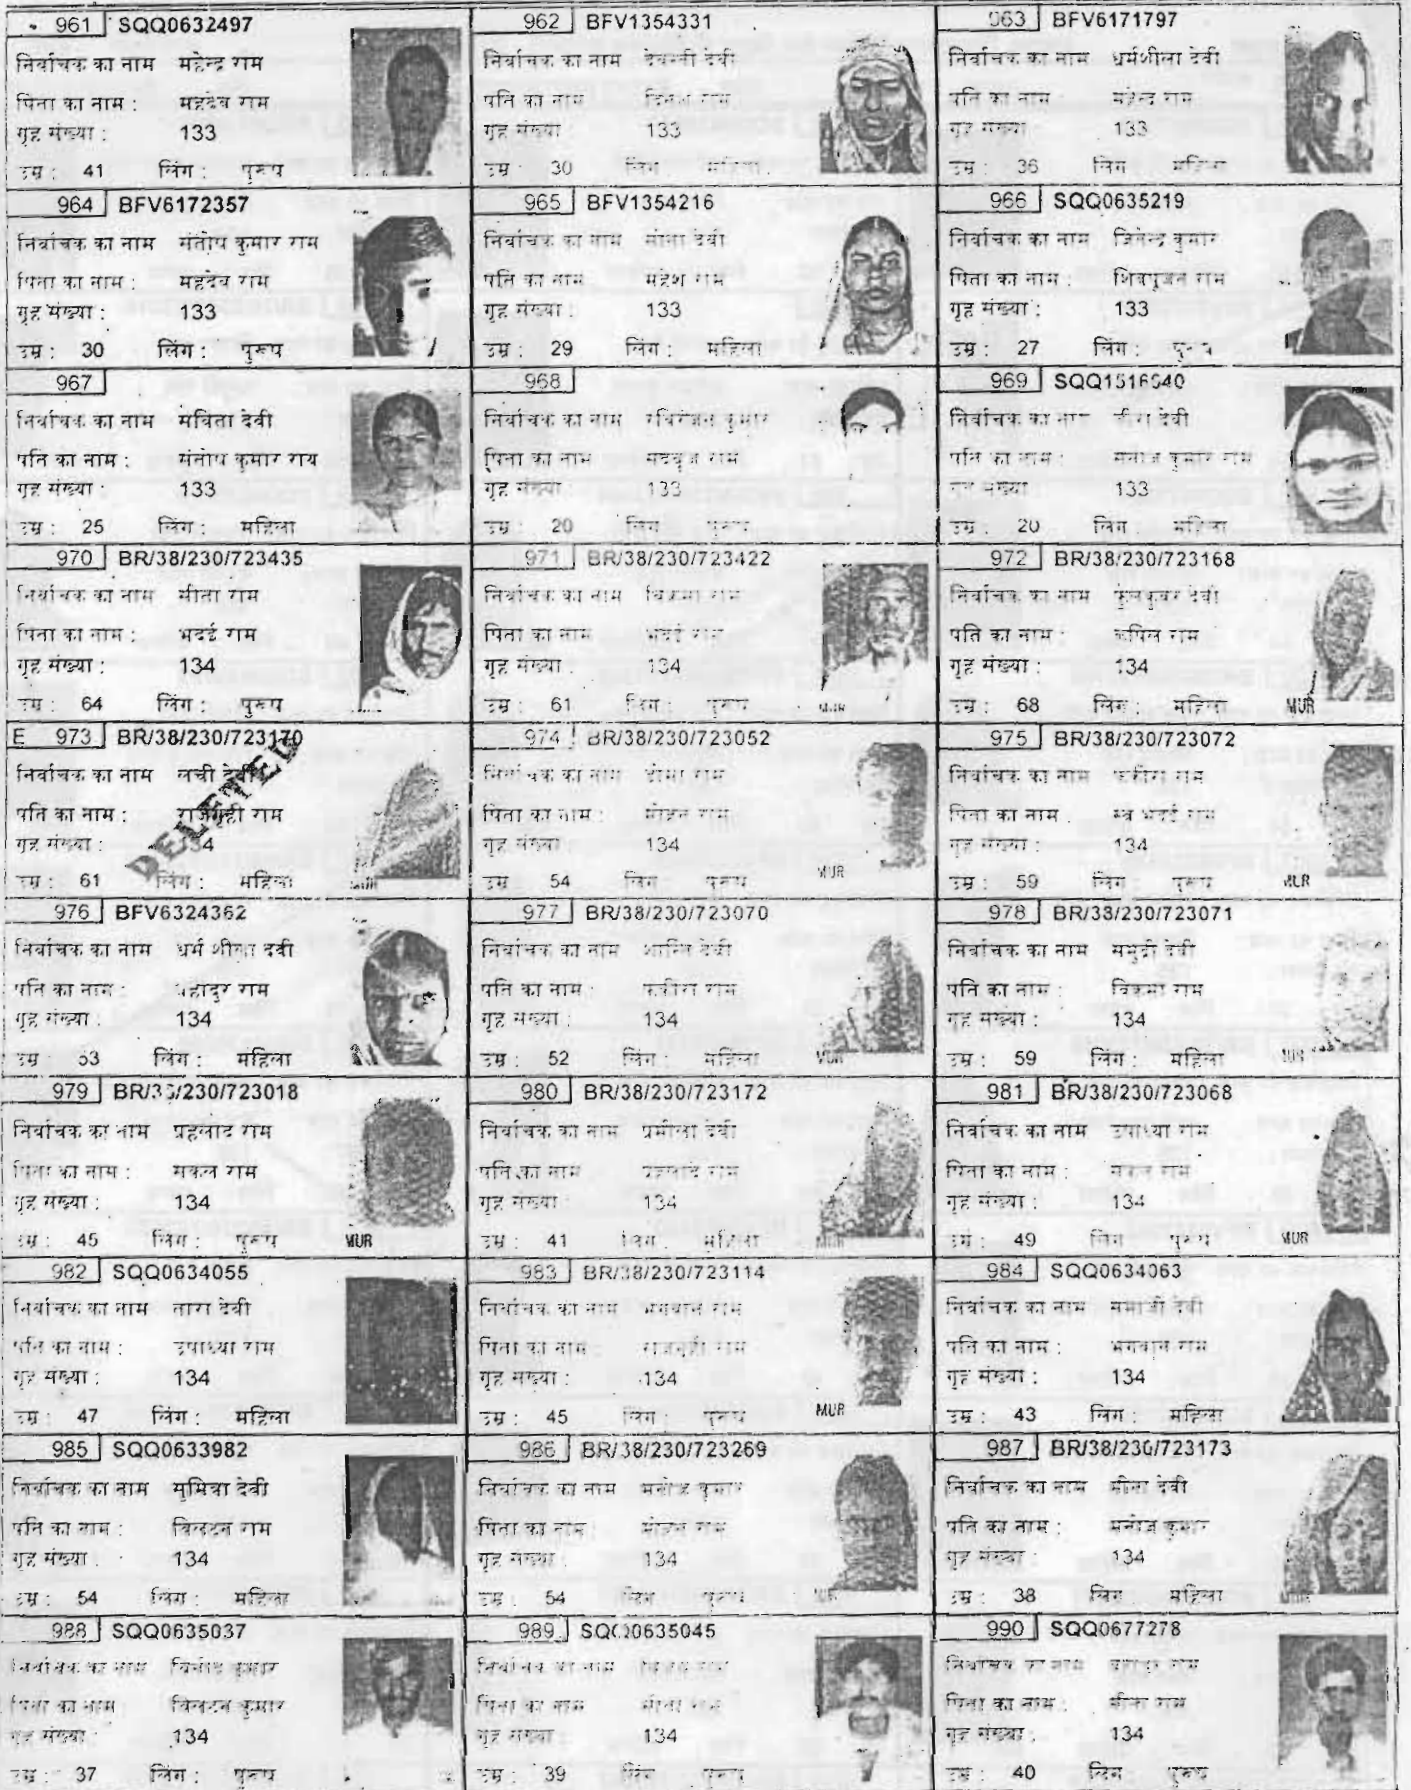 961 SQQ0632497
निर्वाचक का नाम महेन्द्र राम
पिता का नाम : महदेव राम
गृह संख्या : 133
उम्र : 41 लिंग : पुरूष
962 BFV1354331
निर्वाचक का नाम देवन्ती देवी
पति का नाम राम
गृह संख्या : 133
उम्र : 30 लिंग महिला
963 BFV6171797
निर्वाचक का नाम धर्मशीला देवी
पति का नाम महेन्द्र राम
गृह संख्या 133
उम्र : 36 लिंग महिला
964 BFV6172357
निर्वाचक का नाम संतोष कुमार राम
पिता का नाम : महदेव राम
गृह संख्या : 133
उम्र : 30 लिंग : पुरूष
965 BFV1354216
निर्वाचक का नाम मोना देवी
पति का नाम महेश राम
गृह संख्या : 133
उम्र : 29 लिंग : महिला
966 SQQ0635219
निर्वाचक का नाम जितेन्द्र कुमार
पिता का नाम : शिवपूजन राम
गृह संख्या : 133
उम्र : 27 लिंग : पुरूष
967
निर्वाचक का नाम सविता देवी
पति का नाम : संतोष कुमार राय
गृह संख्या : 133
उम्र : 25 लिंग : महिला
968
निर्वाचक का नाम रविरंजन कुमार
पिता का नाम राम
गृह संख्या 133
उम्र : 20 लिंग पुरूष
969
निर्वाचक का नाम देवी
पति का नाम : मनोज कुमार राम
गृह संख्या 133
उम्र : 20 लिंग महिला
970 BR/38/230/723435
निर्वाचक का नाम सीता राम
पिता का नाम : भदई राम
गृह संख्या : 134
उम्र : 64 लिंग : पुरूष
971 BR/38/230/723422
निर्वाचक का नाम विक्रमा राम
पिता का नाम भदई राम
गृह संख्या : 134
उम्र : 61 लिंग : पुरूष
MUR
972 BR/38/230/723168
निर्वाचक का नाम फुलकुवर देवी
पति का नाम : कपिल राम
गृह संख्या : 134
उम्र : 68 लिंग : महिला
MUR
E 973 BR/38/230/723170
निर्वाचक का नाम लची देवी
पति का नाम : राजगृही राम
गृह संख्या : 134
उम्र : 61 लिंग : महिला
MUR
DELETED
974 BR/38/230/723052
निर्वाचक का नाम डोमा राम
पिता का नाम : मोहन राम
गृह संख्या : 134
उम्र 54 लिंग पुरूष
MUR
975 BR/38/230/723072
निर्वाचक का नाम फकीरा राम
पिता का नाम : स्व भदई राम
गृह संख्या : 134
उम्र : 59 लिंग : पुरूष
MUR
976 BFV6324362
निर्वाचक का नाम धर्म शीला देवी
पति का नाम : बहादुर राम
गृह संख्या : 134
उम्र : लिंग : महिला
977 BR/38/230/723070
निर्वाचक का नाम शान्ति देवी
पति का नाम : फकीरा राम
गृह संख्या : 134
उम्र : 52 लिंग : महिला
MUR
978 BR/38/230/723071
निर्वाचक का नाम समुद्री देवी
पति का नाम : विक्रमा राम
गृह संख्या : 134
उम्र : 59 लिंग : महिला
MUR
979 BR/38/230/723018
निर्वाचक का नाम प्रहलाद राम
पिता का नाम : सकल राम
गृह संख्या : 134
उम्र : 45 लिंग : पुरूष
MUR
980 BR/38/230/723172
निर्वाचक का नाम प्रमीला देवी
पति का नाम प्रहलाद राम
गृह संख्या 134
उम्र : 41 लिंग : महिला
MUR
981 BR/38/230/723068
निर्वाचक का नाम उपाध्या राम
पिता का नाम : सकल राम
गृह संख्या : 134
उम्र : 49 लिंग पुरूष
MUR
982 SQQ0634055
निर्वाचक का नाम तारा देवी
पति का नाम : उपाध्या राम
गृह संख्या : 134
उम्र : 47 लिंग : महिला
983 BR/38/230/723114
निर्वाचक का नाम भगवान राम
पिता का नाम राजगृही राम
गृह संख्या : 134
उम्र : 45 लिंग : पुरूष
MUR
984 SQQ0634063
निर्वाचक का नाम समाजी देवी
पति का नाम : भगवान राम
गृह संख्या : 134
उम्र : 43 लिंग : महिला
985 SQQ0633982
निर्वाचक का नाम सुमित्रा देवी
पति का नाम : विलटन राम
गृह संख्या : 134
उम्र : 54 लिंग : महिला
986 BR/38/230/723269
निर्वाचक का नाम मनोज कुमार
पिता का नाम : मोहन राम
गृह संख्या : 134
उम्र : 54 लिंग पुरूष
987 BR/38/230/723173
निर्वाचक का नाम मीना देवी
पति का नाम : मनोज कुमार
गृह संख्या : 134
उम्र : 38 लिंग महिला
MUR
988 SQQ0635037
निर्वाचक का नाम विनोद कुमार
पिता का नाम विलटन कुमार
गृह संख्या : 134
उम्र : 37 लिंग : पुरूष
989 SQQ0635045
निर्वाचक का नाम राम
पिता का नाम सीता राम
गृह संख्या : 134
उम्र : 39 लिंग पुरूष
990 SQQ0677278
निर्वाचक का नाम बहादुर राम
पिता का नाम : सीता राम
गृह संख्या : 134
उम्र : 40 लिंग पुरूष